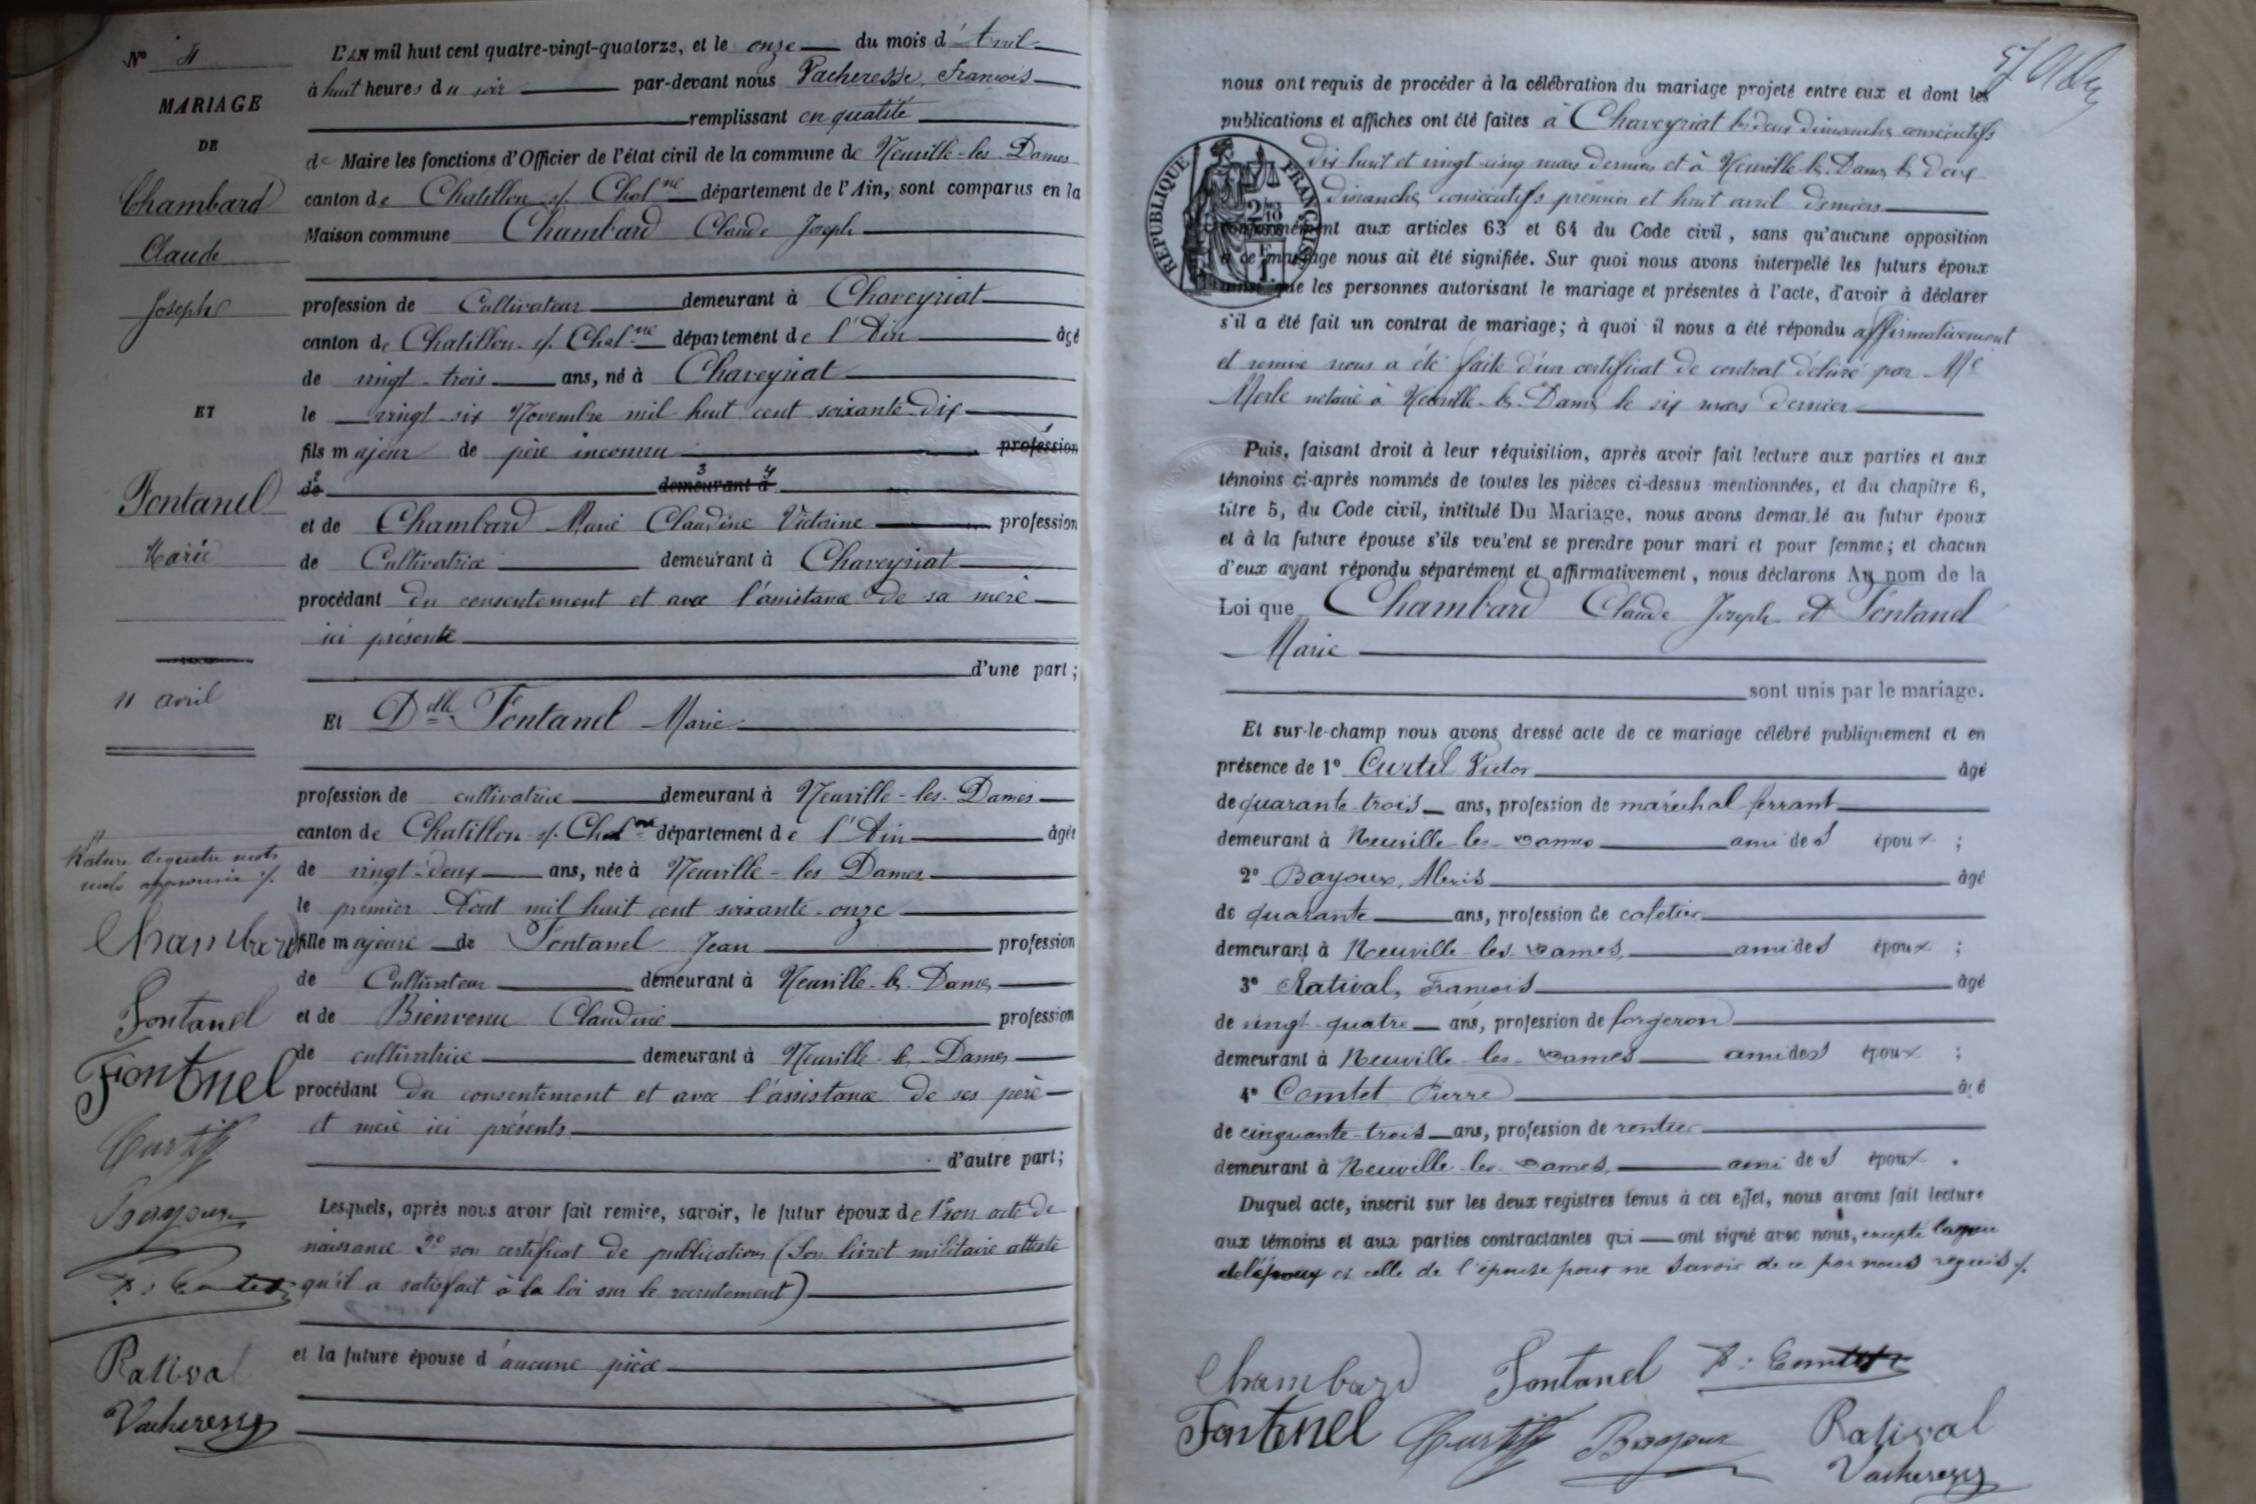 N° 4
MARIAGE
DE
Chambard
Claude
Joseph
ET
Fontanel
Marie
11 avril
Rature de quatre mots
nuls approuvée ./.
Chambard
Fontanel
Fontnel
Curtil
Bayoux
P. Comtet
Ratival
Vacheresse
L'AN mil huit cent quatre-vingt-quatorze, et le onze du mois d'Avril
à huit heures du soir par-devant nous Vacheresse, François
remplissant en qualité
de Maire les fonctions d'Officier de l'état civil de la commune de Neuville-les-Dames
canton de Chatillon s/ Chal.ne département de l'Ain, sont comparus en la
Maison commune Chambard Claude Joseph
profession de Cultivateur demeurant à Chaveyriat
canton de Chatillon s/ Chal.ne département de l'Ain âgé
de vingt-trois ans, né à Chaveyriat
le vingt-six Novembre mil huit cent soixante-dix
fils majeur de père inconnu profession
de demeurant à
et de Chambard Marie Claudine Victorine profession
de Cultivatrice demeurant à Chaveyriat
procédant du consentement et avec l'assistance de sa mère
ici présente
d'une part;
Et Dlle Fontanel Marie
profession de cultivatrice demeurant à Neuville-les-Dames
canton de Chatillon s/ Chal.ne département de l'Ain âgée
de vingt-deux ans, née à Neuville-les-Dames
le premier Août mil huit cent soixante-onze
fille majeure de Fontanel Jean profession
de Cultivateur demeurant à Neuville-les-Dames
et de Bienvenu Claudine profession
de cultivatrice demeurant à Neuville-les-Dames
procédant du consentement et avec l'assistance de ses père
et mère ici présents
d'autre part;
Lesquels, après nous avoir fait remise, savoir, le futur époux de 1° son acte de
naissance 2° son certificat de publications (Son livret militaire atteste
qu'il a satisfait à la loi sur le recrutement)
et la future épouse d'aucune pièce
57
nous ont requis de procéder à la célébration du mariage projeté entre eux et dont les
publications et affiches ont été faites à Chaveyriat les deux dimanches consécutifs
dix huit et vingt-cinq mars derniers et à Neuville-les-Dames les deux
dimanches consécutifs premier et huit avril derniers
conformément aux articles 63 et 64 du Code civil, sans qu'aucune opposition
à ce mariage nous ait été signifiée. Sur quoi nous avons interpellé les futurs époux
ainsi que les personnes autorisant le mariage et présentes à l'acte, d'avoir à déclarer
s'il a été fait un contrat de mariage; à quoi il nous a été répondu affirmativement
et remise nous a été faite d'un certificat de contrat délivré par Me
Merle notaire à Neuville-les-Dames le six mars dernier
RÉPUBLIQUE FRANÇAISE
2/10
1 F
Puis, faisant droit à leur réquisition, après avoir fait lecture aux parties et aux
témoins ci-après nommés de toutes les pièces ci-dessus mentionnées, et du chapitre 6,
titre 5, du Code civil, intitulé Du Mariage, nous avons demandé au futur époux
et à la future épouse s'ils veulent se prendre pour mari et pour femme; et chacun
d'eux ayant répondu séparément et affirmativement, nous déclarons Au nom de la
Loi que Chambard Claude Joseph et Fontanel
Marie
sont unis par le mariage.
Et sur-le-champ nous avons dressé acte de ce mariage célébré publiquement et en
présence de 1° Curtil Victor âgé
de quarante-trois ans, profession de maréchal ferrant
demeurant à Neuville-les-Dames ami des époux ;
2° Bayoux, Alexis âgé
de quarante ans, profession de cafetier
demeurant à Neuville-les-Dames, ami des époux ;
3° Ratival, François âgé
de vingt-quatre ans, profession de forgeron
demeurant à Neuville-les-Dames ami des époux ;
4° Comtet Pierre âgé
de cinquante-trois ans, profession de rentier
demeurant à Neuville-les-Dames, ami des époux .
Duquel acte, inscrit sur les deux registres tenus à cet effet, nous avons fait lecture
aux témoins et aux parties contractantes qui ont signé avec nous, excepté la mère
de l'époux et celle de l'épouse pour ne savoir de ce par nous requis ./.
Chambard Fontanel P. Comtet
Fontnel Curtil Bayoux Ratival
Vacheresse